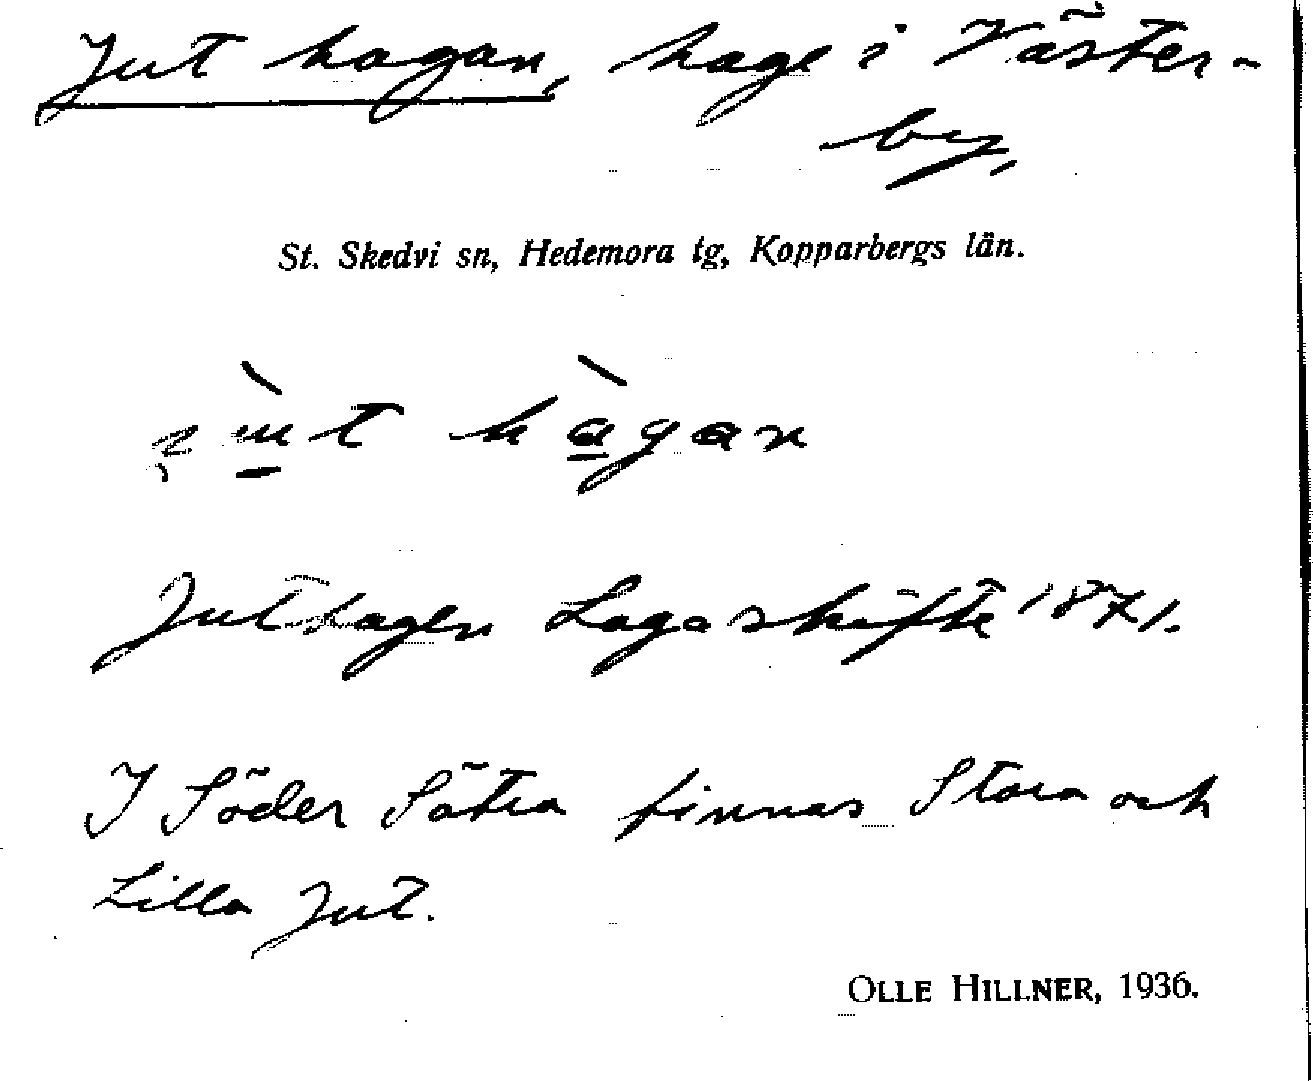 Jut hagan, hage i Väster-
by,
St. Skedvi sn, Hedemora tg, Kopparbergs län.
hàgan
Juthagen Laga skifte 1871.
I Söder Sätra finnas Stora och
Lilla Jut.
OLLE HILLNER, 1936.